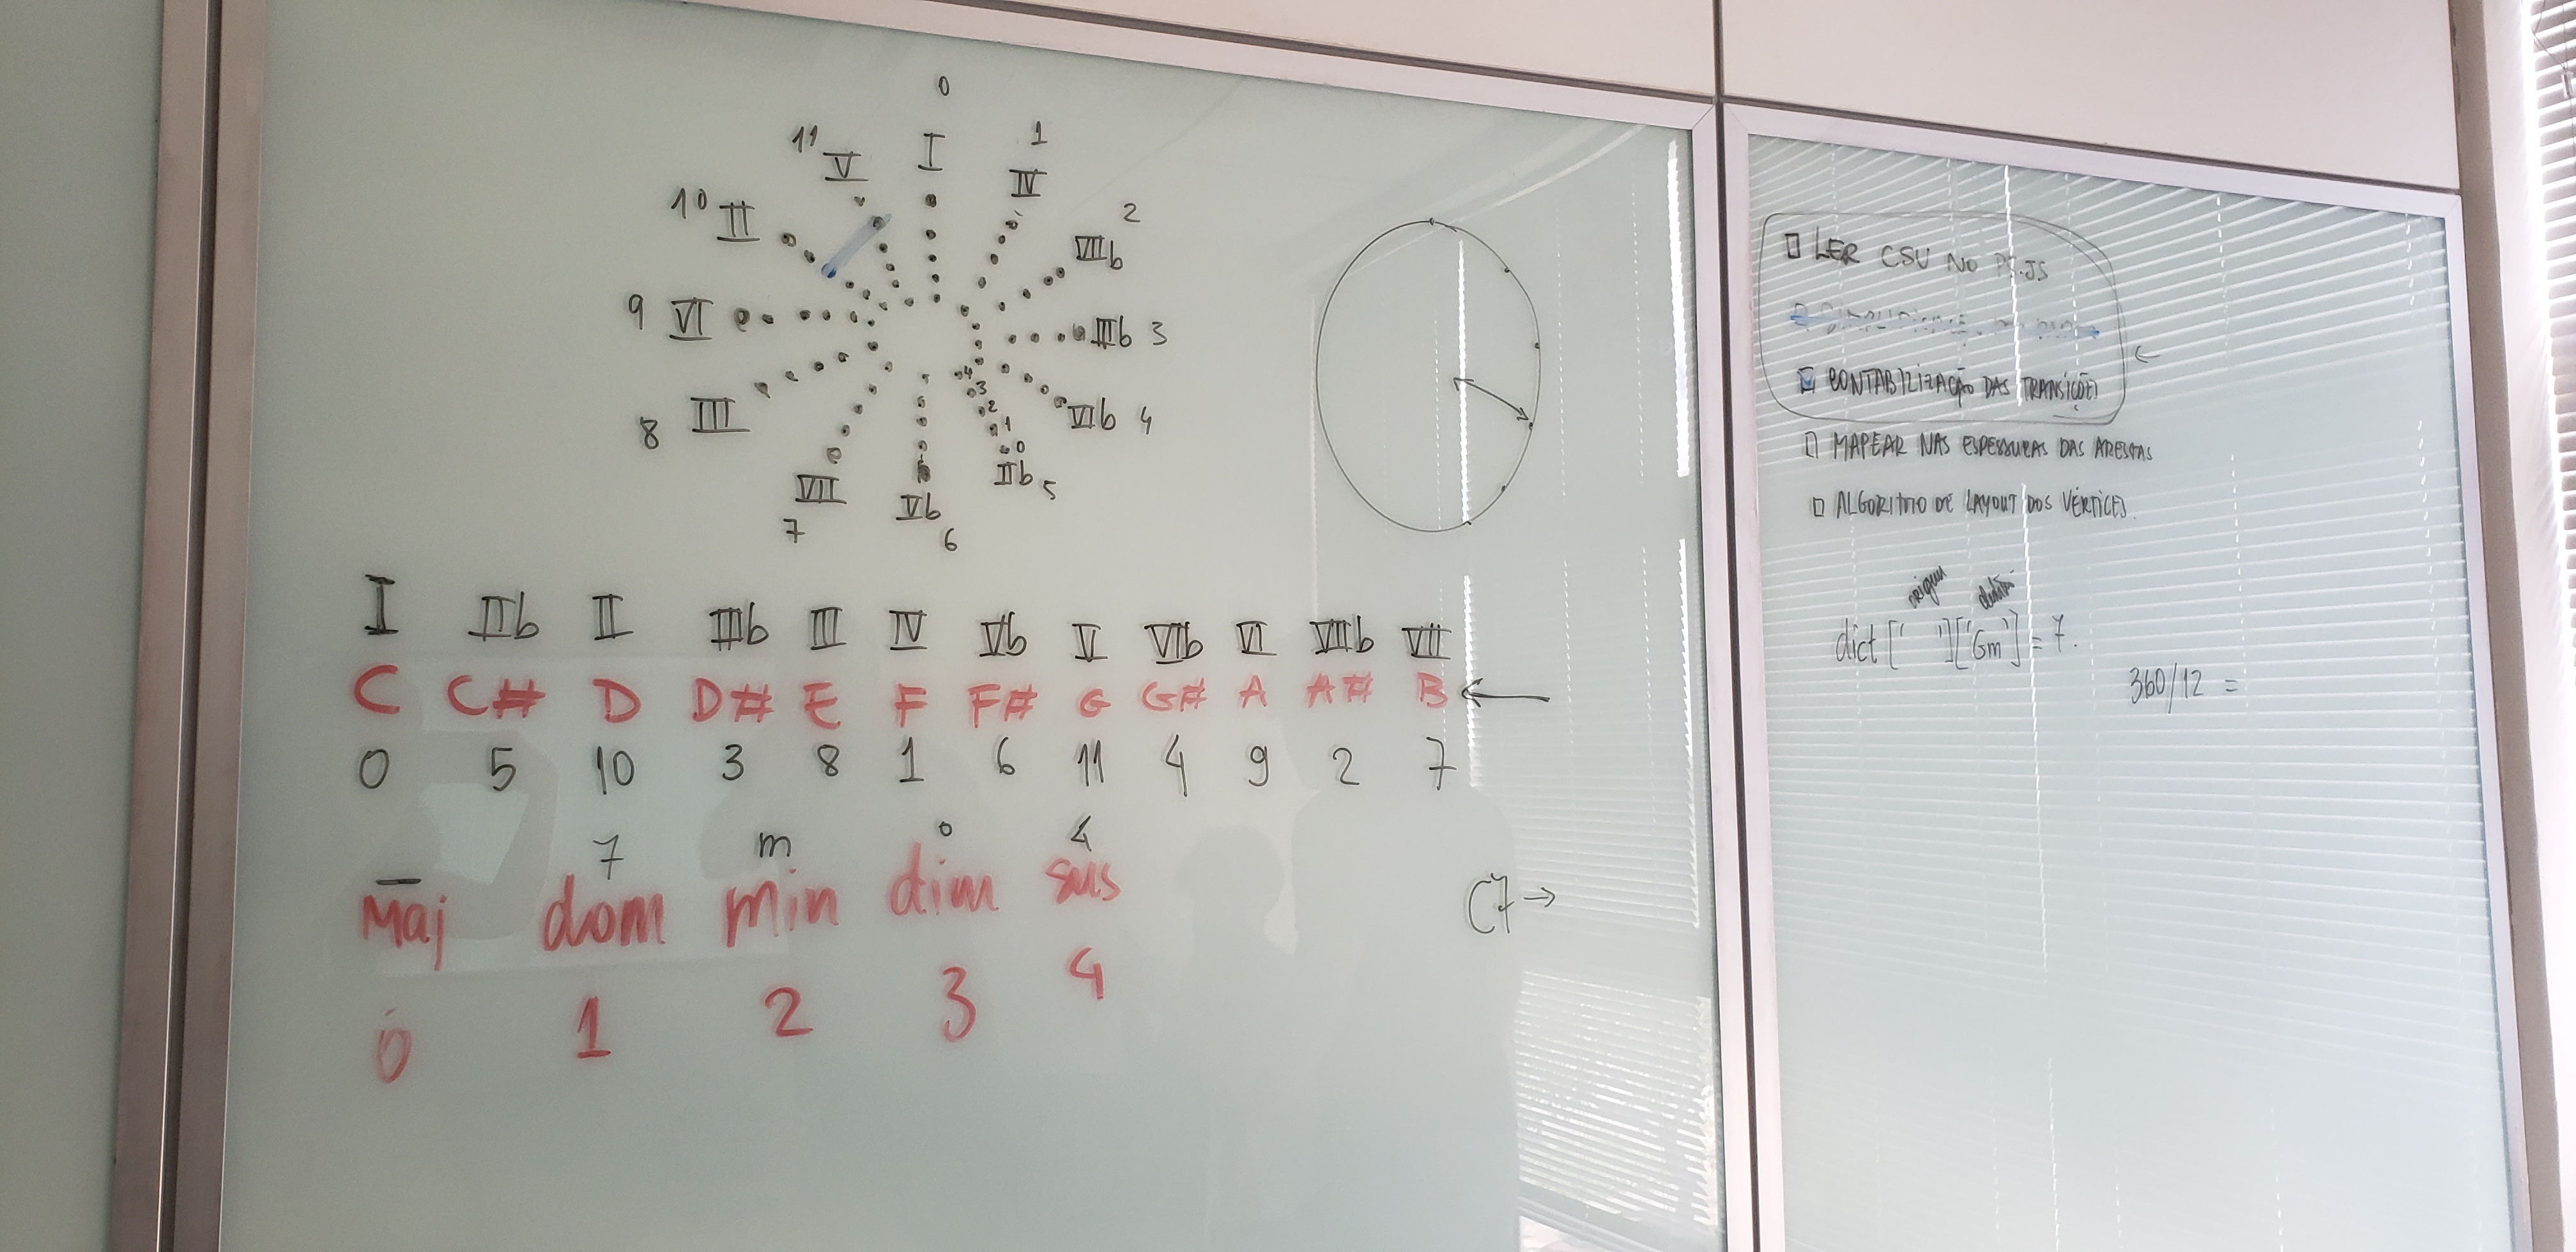 0
11 V I 1 IV
10 II 2 VIIb
9 VI IIIb 3
8 III VIb 4
4
3
2
1
0
VII IIb 5
7 Vb
6
I IIb II IIIb III IV Vb V VIb VI VIIb VII
C C# D D# E F F# G G# A A# B ←
0 5 10 3 8 1 6 11 4 9 2 7
— 7 m o 4
Maj dom min dim sus
0 1 2 3 4
C7 →
LER CSV NO P5.JS
CONTABILIZAÇÃO DAS TRANSIÇÕES
←
MAPEAR NAS ESPESSURAS DAS ARESTAS
ALGORITMO DE LAYOUT DOS VÉRTICES
origem
dict [' ']['Gm'] = 7.
360/12 =